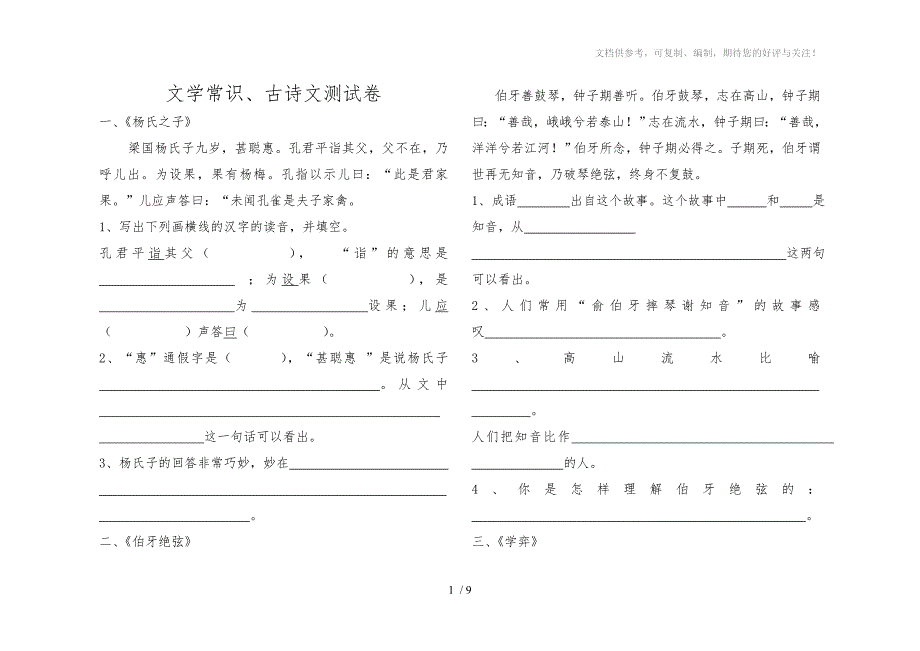 文档供参考，可复制、编制，期待您的好评与关注！
文学常识、古诗文测试卷
一、《杨氏之子》
梁国杨氏子九岁，甚聪惠。孔君平诣其父，父不在，乃
呼儿出。为设果，果有杨梅。孔指以示儿曰：“此是君家
果。”儿应声答曰：“未闻孔雀是夫子家禽。
1、写出下列画横线的汉字的读音，并填空。
孔君平诣其父（ ），“诣”的意思是
____________；为设果（ ），是
____________为____________设果；儿应
（ ）声答曰（ ）。
2、“惠”通假字是（ ），“甚聪惠 ”是说杨氏子
____________。从文中
____________
____________这一句话可以看出。
3、杨氏子的回答非常巧妙，妙在____________
____________
____________。
二、《伯牙绝弦》
伯牙善鼓琴，钟子期善听。伯牙鼓琴，志在高山，钟子期
曰：“善哉，峨峨兮若泰山！”志在流水，钟子期曰：“善哉，
洋洋兮若江河！”伯牙所念，钟子期必得之。子期死，伯牙谓
世再无知音，乃破琴绝弦，终身不复鼓。
1、成语________出自这个故事。这个故事中______和_____是
知音，从____________
____________这两句
可以看出。
2、人们常用“俞伯牙摔琴谢知音”的故事感
叹____________。
3、高山流水比喻
____________
____________。
人们把知音比作____________
____________的人。
4、你是怎样理解伯牙绝弦的：
____________。
三、《学弈》
1 / 9